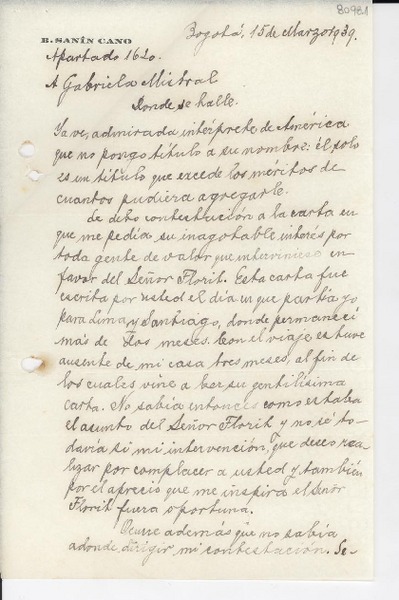 80981
B. SANÍN CANO
Bogotá, 15 de Marzo 1939.
Apartado 1620.
A Gabriela Mistral
Donde se halle.
Ya ve, admirada intérprete de América
que no pongo título a su nombre: él solo
es un título que excede los méritos de
cuantos pudiera agregarle.
Le debo contestación a la carta en
que me pedía su inagotable interés por
toda gente de valor que interviniese en
favor del Señor Florit. Esta carta fue
escrita por usted el día en que partía yo
para Lima y Santiago, donde permanecí
más de dos meses. Con el viaje estuve
ausente de mi casa tres meses, al fin de
los cuales vine a ver su gentilísima
carta. No sabía entonces como estaba
el asunto del Señor Florit y no sé to-
davía si mi intervención, que deseo rea-
lizar por complacer a usted y también
por el aprecio que me inspira el Señor
Florit fuera oportuna.
Ocurre además que no sabía
adonde dirigir mi contestación. Se-